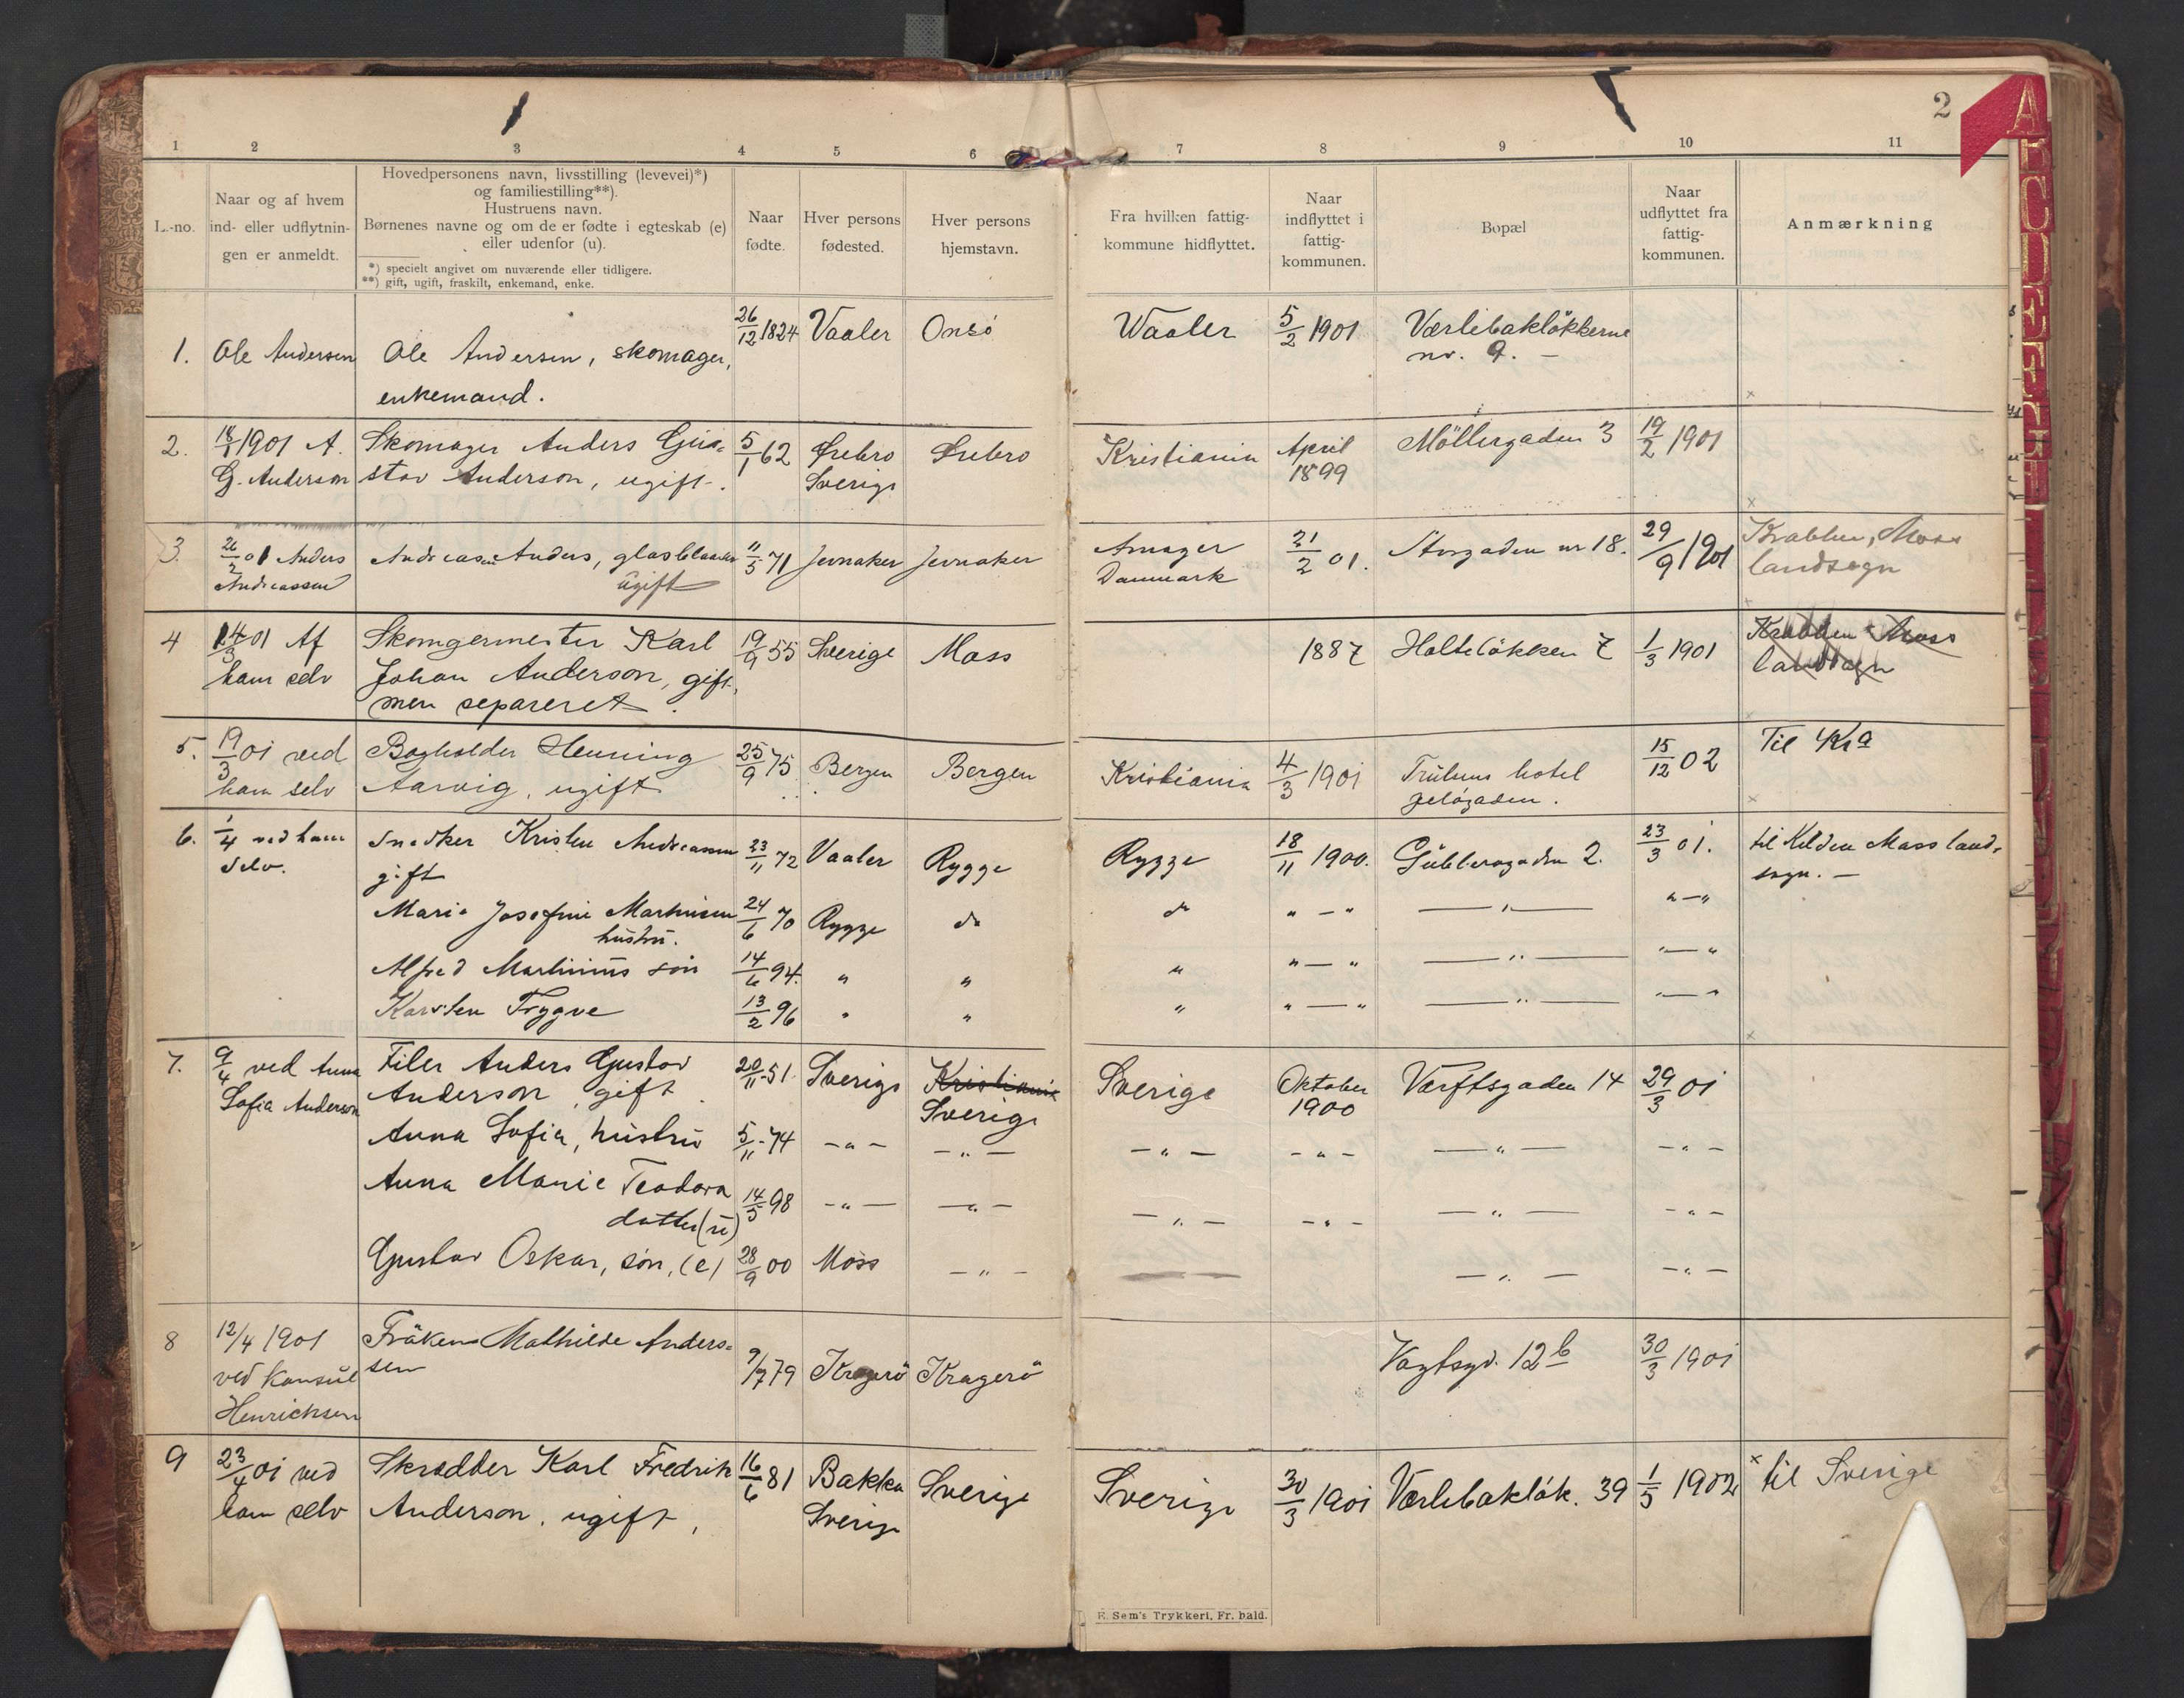 2
1 2 3 4 5 6 7 8 9 10 11
L.-no.
Naar og af hvem
ind- eller udflytnin-
gen er anmeldt.
Hovedpersonens navn, livsstilling (levevei)*)
og familiestilling**).
Hustruens navn.
Børnenes navne og om de er fødte i egteskab (e)
eller udenfor (u).
*) specielt angivet om nuværende eller tidligere.
**) gift, ugift, fraskilt, enkemand, enke.
Naar
fødte.
Hver persons
fødested.
Hver persons
hjemstavn.
Fra hvilken fattig-
kommune hidflyttet.
Naar
indflyttet i
fattig-
kommunen.
Bopæl
Naar
udflyttet fra
fattig-
kommunen.
Anmærkning
A
B
C
D
E
F
1. Ole Andersen Ole Andersen, skomager, 26/12 1824 Vaaler Onsö Waaler 5/2 1901 Værlebaklökkerne
enkemand. nr. 9. —
2. 18/1 1901 A. Skomager Anders Gus- 5/1 62 Ørebro Ørebro Kristiania April Möllergaden 3 19/2 1901
G. Anderson stav Anderson, ugift. Sverige 1899
3. 26/2 01 Anders Andreasen Anders, glasblaaser 11/5 71 Jevnaker Jevnaker Amager 21/2 01. Storgaden nr 18. 29/9 1901 Krabben, Moss
Andreassen ugift Danmark landsogn
4 14/3 01 Af Skomgermester Karl 19/9 55 Sverige Moss 1887 Holtelökken 7 1/3 1901 Krabben Moss
ham selv Johan Anderson, gift, landsogn
men separeret.
5. 19/3 01 ved Bogholder Henning 25/9 75 Bergen Bergen Kristiania 4/3 1901 Trulsens hotel 15/12 02 Til Kra
ham selv Aarvig, ugift gelögaden.
6. 1/4 ved ham Snedker Kristen Andreassen 23/11 72 Vaaler Rygge Rygge 18/11 1900. Gublersgaden 2. 23/3 01. til Kilden Moss land-
selv. gift sogn. —
Marie Josefine Martinsen 24/6 70 Rygge do do " — " — " — " — "
hustru.
Alfred Martinius sön 14/6 94. " " " " — " — " — " — "
Karsten Trygve 13/2 96 " " " " — " — " — " — "
7. 9/4 ved Anna Filer Anders Gustav 20/11 51. Sverige Kristiania Sverige Oktober Værftsgaden 14 29/3 01
Sofia Anderson Anderson, gift. Sverige 1900
Anna Sofia, hustru 5/11 74 — " — — " — — " — — " — — " — — " —
Anna Marie Teodora 14/5 98 — " — — " — — " — — " — — " — — " —
datter (u)
Gustav Oskar, sön, (e) 28/9 00 Moss — " — — — " — — " —
8 12/4 1901 Fröken Mathilde Anders- 9/7 79 Kragerö Kragerö Vagtsgd. 12 b 30/3 1901
ved konsul sen
Henrichsen
9 23/4 01 ved Skrædder Karl Fredrik 16/6 81 Bakka Sverige Sverige 30/3 1901 Værlebaklök. 39 1/5 1902 x til Sverige
ham selv Anderson, ugift, Sverige
E. Sem's Trykkeri, Fr. hald.